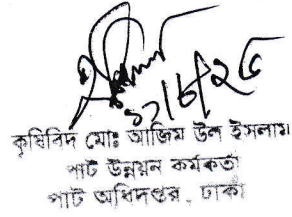 ১৭/৮/২৫
কৃষিবিদ মোঃ আজিম উল ইসলাম।
পাট উন্নয়ন কর্মকর্তা
পাট অধিদপ্তর, ঢাকা